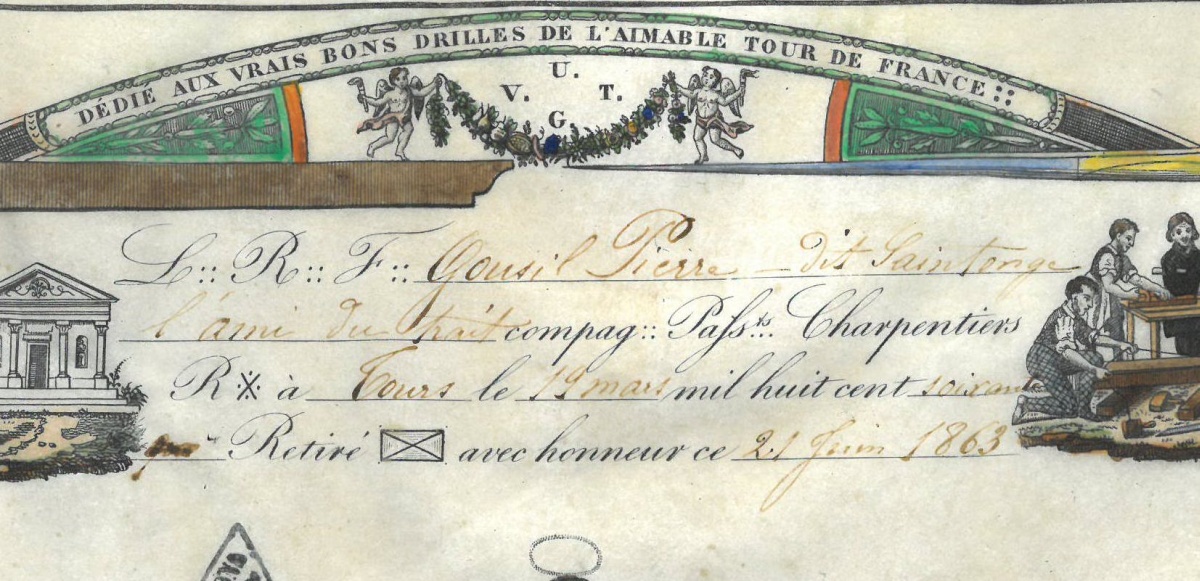 DÉDIE AUX VRAIS BONS DRILLES DE L'AIMABLE TOUR DE FRANCE ::
U.
V. T.
G
L:: R:: F:: Gousil Pierre - dit Saintonge
l'ami du trait compag:: Passts.. Charpentiers
R à Tours le 19 mars mil huit cent soixante
Retiré avec honneur ce 21 Juin 1863